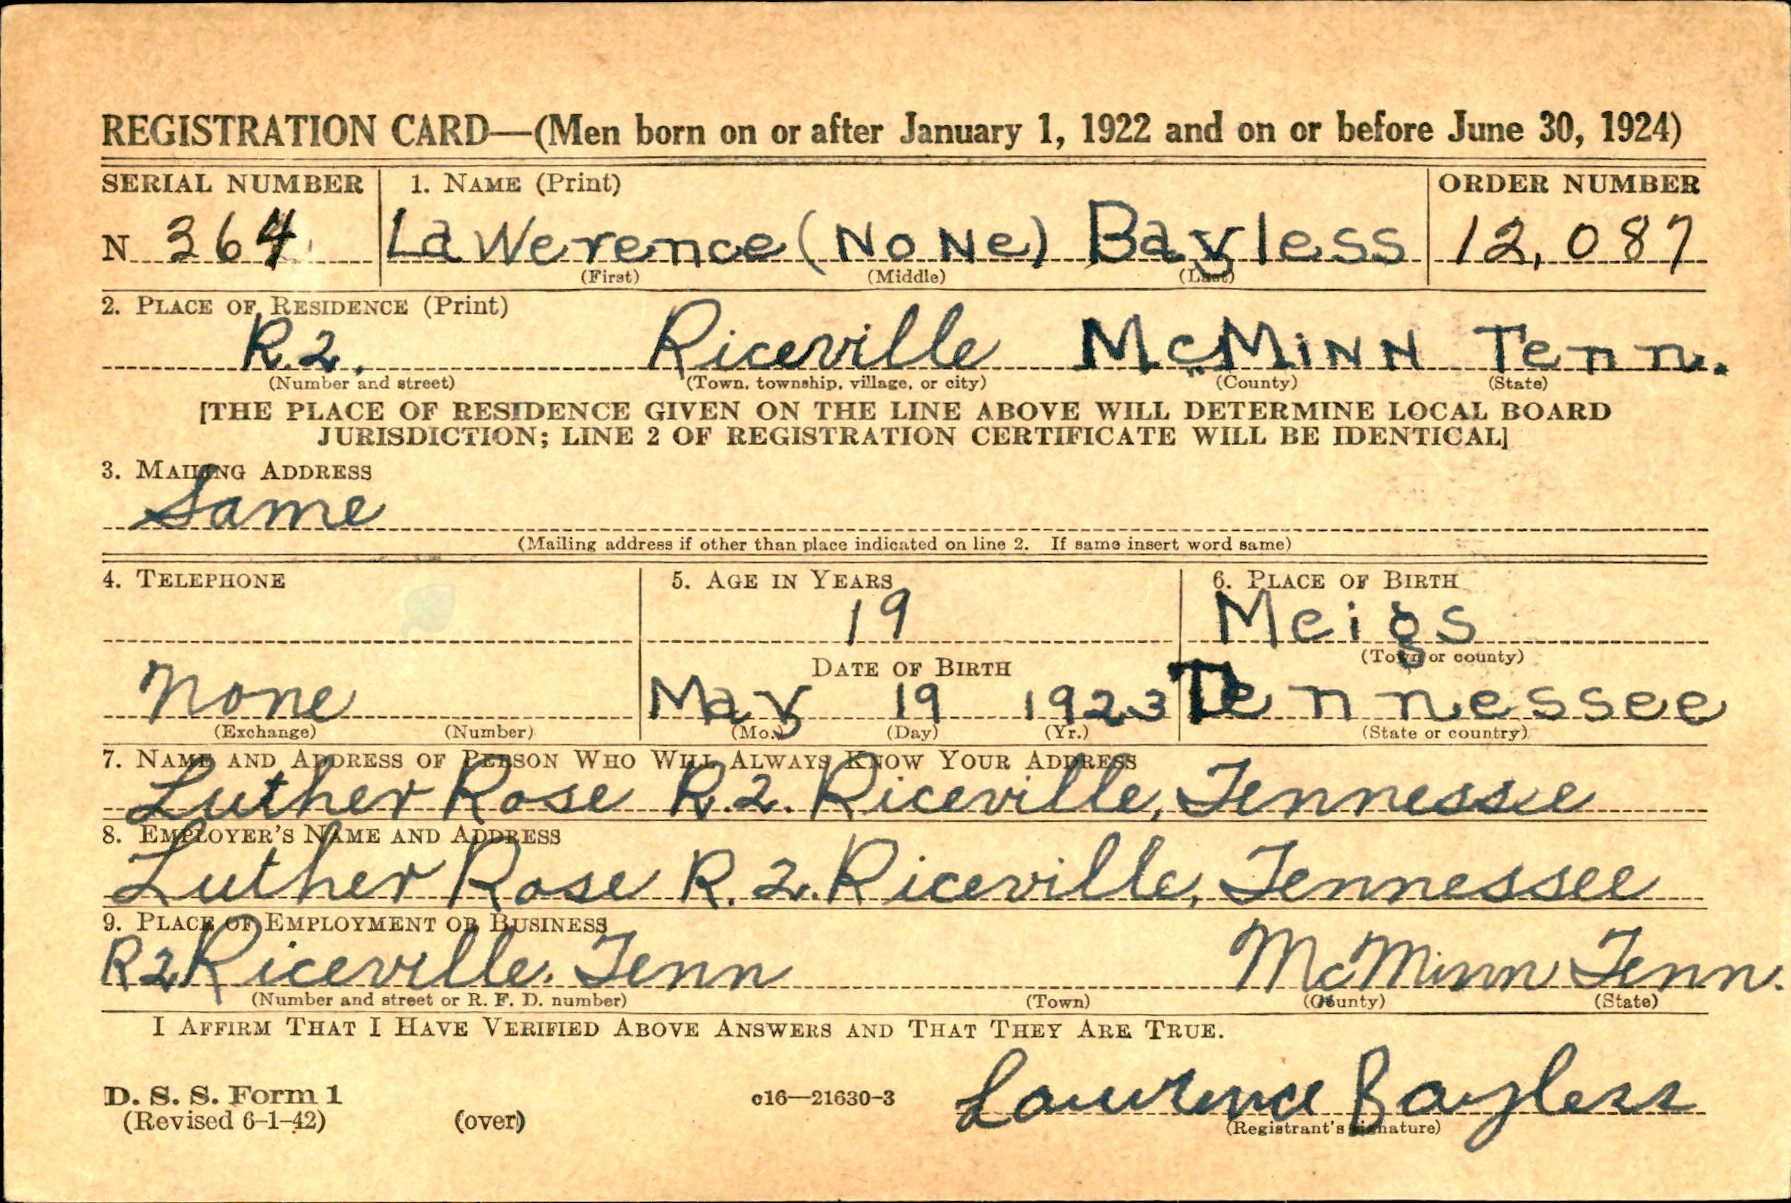 REGISTRATION CARD—(Men born on or after January 1, 1922 and on or before June 30, 1924)
SERIAL NUMBER 1. NAME (Print) ORDER NUMBER
N 364 LaWerence (NoNe) Bayless 12,087
(First) (Middle) (Last)
2. PLACE OF RESIDENCE (Print)
R.2. Riceville McMiNN Tenn.
(Number and street) (Town, township, village, or city) (County) (State)
[THE PLACE OF RESIDENCE GIVEN ON THE LINE ABOVE WILL DETERMINE LOCAL BOARD
JURISDICTION; LINE 2 OF REGISTRATION CERTIFICATE WILL BE IDENTICAL]
3. MAILING ADDRESS
Same
(Mailing address if other than place indicated on line 2. If same insert word same)
4. TELEPHONE 5. AGE IN YEARS 6. PLACE OF BIRTH
19 Meigs
DATE OF BIRTH (Town or county)
None May 19 1923 Tennessee
(Exchange) (Number) (Mo.) (Day) (Yr.) (State or country)
7. NAME AND ADDRESS OF PERSON WHO WILL ALWAYS KNOW YOUR ADDRESS
Luther Rose R.2. Riceville, Tennessee
8. EMPLOYER'S NAME AND ADDRESS
Luther Rose R.2. Riceville, Tennessee
9. PLACE OF EMPLOYMENT OR BUSINESS
R2 Riceville. Tenn McMinn Tenn.
(Number and street or R. F. D. number) (Town) (County) (State)
I AFFIRM THAT I HAVE VERIFIED ABOVE ANSWERS AND THAT THEY ARE TRUE.
D. S. S. Form 1 c16—21630-3 Lawrence Bayless
(Revised 6-1-42) (over) (Registrant's signature)